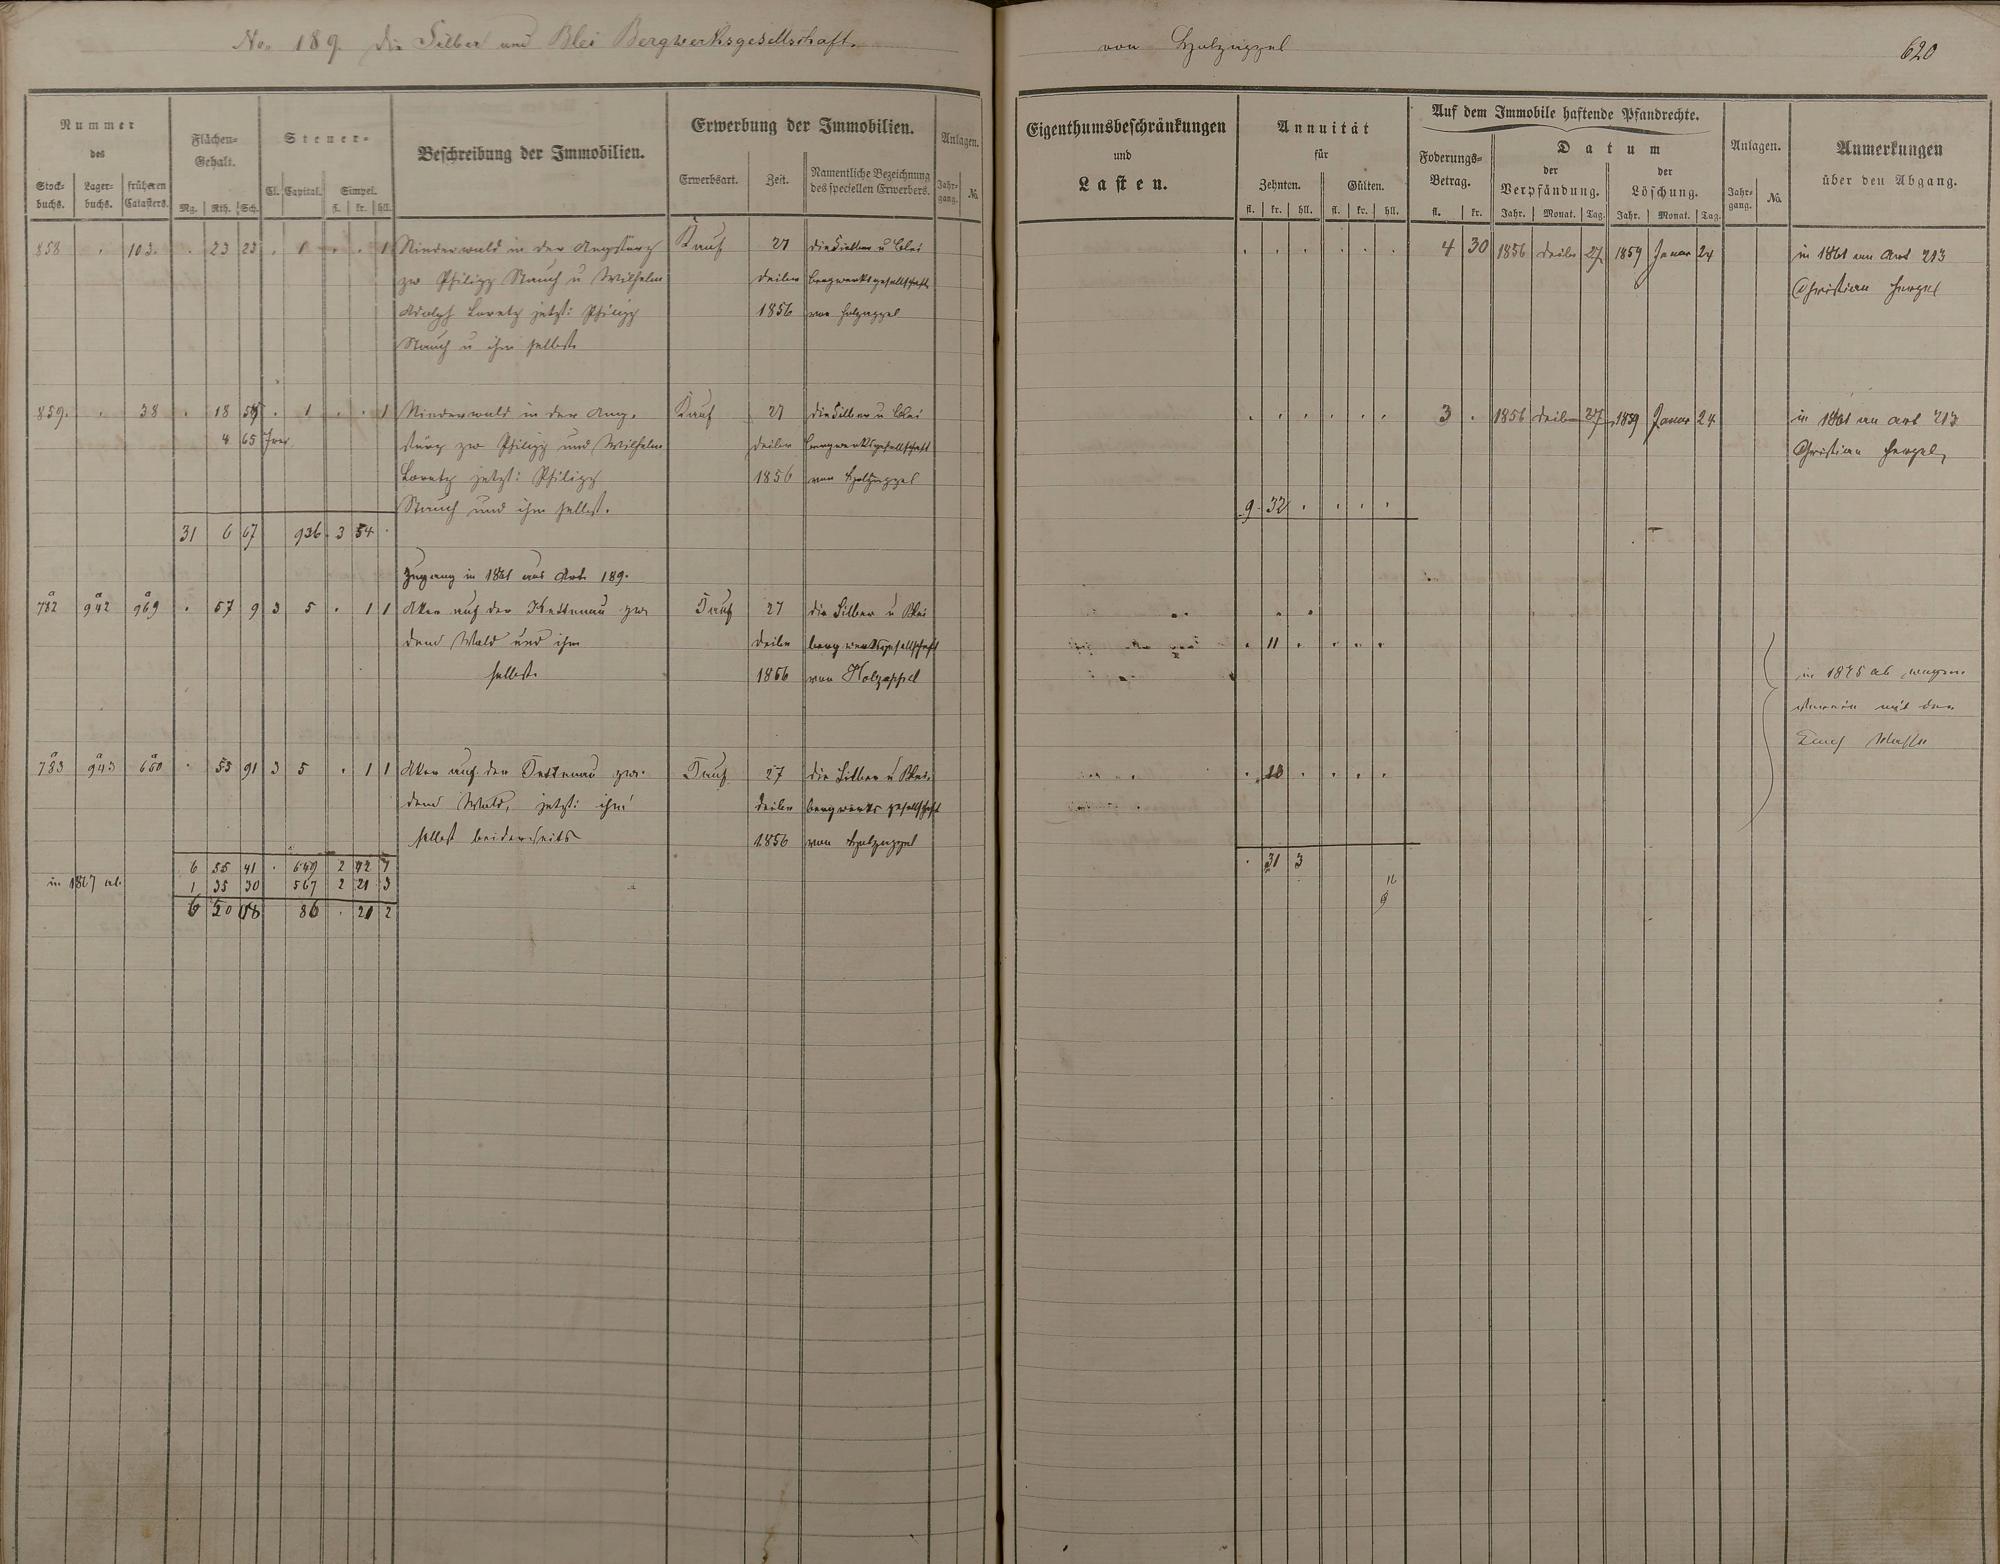 No. 189. Die Silber und Blei Bergwerksgesellschaft.
von Holzappel
620
Nummer
des
Stock-
buchs.
Lager-
buchs.
früheren
Catasters.
Flächen-
Gehalt.
Mg. Rth. Sch.
Steuer-
Cl. Capital. Simpel.
fl. kr. hll.
Beschreibung der Immobilien.
Erwerbung der Immobilien.
Erwerbsart. Zeit.
Namentliche Bezeichnung
des speciellen Erwerbers.
Anlagen.
Jahr-
gang.
No.
Eigenthumsbeschränkungen
und
Lasten.
Annuität
für
Zehnten. Gülten.
fl. kr. hll. fl. kr. hll.
Auf dem Immobile haftende Pfandrechte.
Foderungs-
Betrag.
fl. kr.
Datum
der
Verpfändung.
Jahr. Monat. Tag.
der
Löschung.
Jahr. Monat. Tag.
Anlagen.
Jahr-
gang.
No.
Anmerkungen
über den Abgang.
858 . 103. . 23 23 . 1 . . 1 Niederwald in der Kauf 27 die Silber u Blei
zw Philipp Stauch u Wilhelm Dezbr bergwerksgesellschaft
Adolph Loretz jetzt: Philipp 1856 von Holzappel
Stauch u ihm selbst.
4 30 1856 Dezbr 27 1859 Januar 24 in 1861 an Art 213
Christian
859. . 38 . 18 54 . 1 . . 1 Niederwald in der Kauf 27 die Silber u Blei
4 65 zw Philipp und Wilhelm Dezbr bergwerksgesellschaft
Loretz jetzt: Philipp 1856 von Holzappel
Stauch und ihm selbst.
3 . 1856 Dezbr 27 1859 Januar 24 in 1861 an Art 213
Christian
9 32 . . . .
31 6 67 936 3 54 .
Zugang in 1861 aus Art. 189.
a782 a942 a969 . 57 9 3 5 . 1 1 Aker auf der zw. Kauf 27 die Silber u Blei
dem Wald und ihm Dezbr bergwerksgesellschaft
selbst. 1856 von Holzappel
. 11 . . . .
in 1875 ab wegen
mit der
a783 a943 a660 . 55 91 3 5 . 1 1 Aker auf der zw. Kauf 27 die Silber u Blei
dem Wald, jetzt: ihm Dezbr bergwerksgesellschaft
selbst beiderseits 1856 von Holzappel
. 31 3
6 55 41 . 649 2 42 7
in 1867 ab. 1 35 30 567 2 21 3
86 . 21 2